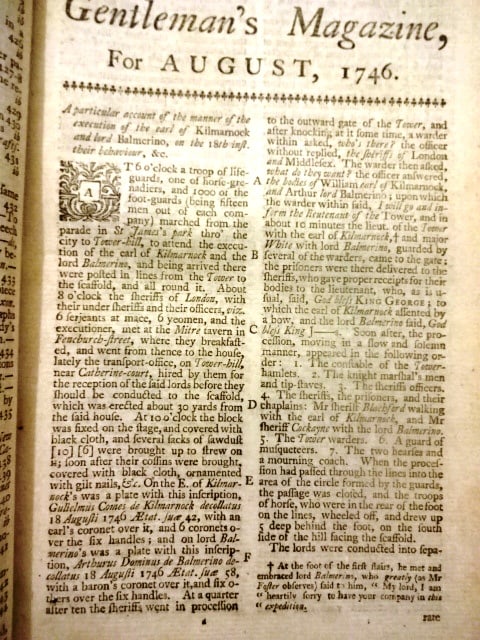 Gentleman's Magazine,
For AUGUST, 1746.
A particular account of the manner of the
execution of the earl of Kilmarnock
and lord Balmerino, on the 18th inst.
their behaviour, &c.
AT 6 o'clock a troop of life-
guards, one of horse-gre-
nadiers, and 1000 of the
foot-guards (being fifteen
men out of each com-
pany) marched from the
parade in St James's park thro' the
city to Tower-hill, to attend the execu-
tion of the earl of Kilmarnock and the
lord Balmerino, and being arrived there
were posted in lines from the Tower to
the scaffold, and all round it. About
8 o'clock the sheriffs of London, with
their under sheriffs and their officers, viz.
6 serjeants at mace, 6 yeomen, and the
executioner, met at the Mitre tavern in
Fenchurch-street, where they breakfast-
ed, and went from thence to the house,
lately the transport-office, on Tower-hill,
near Catherine-court, hired by them for
the reception of the said lords before they
should be conducted to the scaffold,
which was erected about 30 yards from
the said house. At 10 o'clock the block
was fixed on the stage, and covered with
black cloth, and several sacks of sawdust
[10] [6] were brought up to strew on
it; soon after their coffins were brought,
covered with black cloth, ornamented
with gilt nails, &c. On the E. of Kilmar-
nock's was a plate with this inscription,
Gulielmus Comes de Kilmarnock decollatus
18 Augusti 1746 Ætat. suæ 42, with an
earl's coronet over it, and 6 coronets o-
ver the six handles; and on lord Bal-
merino's was a plate with this inscrip-
tion, Arthurus Dominus de Balmerino de-
collatus 18 Augusti 1746 Ætat. suæ 58,
with a baron's coronet over it, and six o-
thers over the six handles. At a quarter
after ten the sheriffs went in procession
to the outward gate of the Tower, and
after knocking at it some time, a warder
within asked, who's there? the officer
without replied, the sheriffs of London
and Middlesex. The warder then asked,
what do they want? the officer answered,
A the bodies of William earl of Kilmarnock,
and Arthur lord Balmerino; upon which
the warder within said, I will go and in-
form the lieutenant of the Tower, and in
about 10 minutes the lieut. of the Tower
with the earl of Kilmarnock,† and major
White with lord Balmerino, guarded by
B several of the warders, came to the gate;
the prisoners were there delivered to the
sheriffs, who gave proper receipts for their
bodies to the lieutenant, who, as is u-
sual, said, God bless KING GEORGE; to
which the earl of Kilmarnock assented by
a bow, and the lord Balmerino said, God
bless King J——. Soon after, the pro-
cession, moving in a slow and solemn
manner, appeared in the following or-
der: 1. The constable of the Tower-
hamlets. 2. The knight marshal's men
and tip-staves. 3. The sheriffs officers.
4. The sheriffs, the prisoners, and their
D chaplains: Mr sheriff Blachford walking
with the earl of Kilmarnock, and Mr
sheriff Cockayne with the lord Balmerino.
5. The Tower warders. 6. A guard of
musqueteers. 7. The two hearses and
a mourning coach. When the proces-
sion had passed through the lines into the
E area of the circle formed by the guards,
the passage was closed, and the troops
of horse, who were in the rear of the foot
on the lines, wheeled off, and drew up
5 deep behind the foot, on the south
side of the hill facing the scaffold.
The lords were conducted into sepa-
F
† At the foot of the first stairs, he met and
embraced lord Balmerino, who greatly (as Mr
Foster observes) said to him, "My lord, I am
" heartily sorry to have your company in this
" expedition.
rate